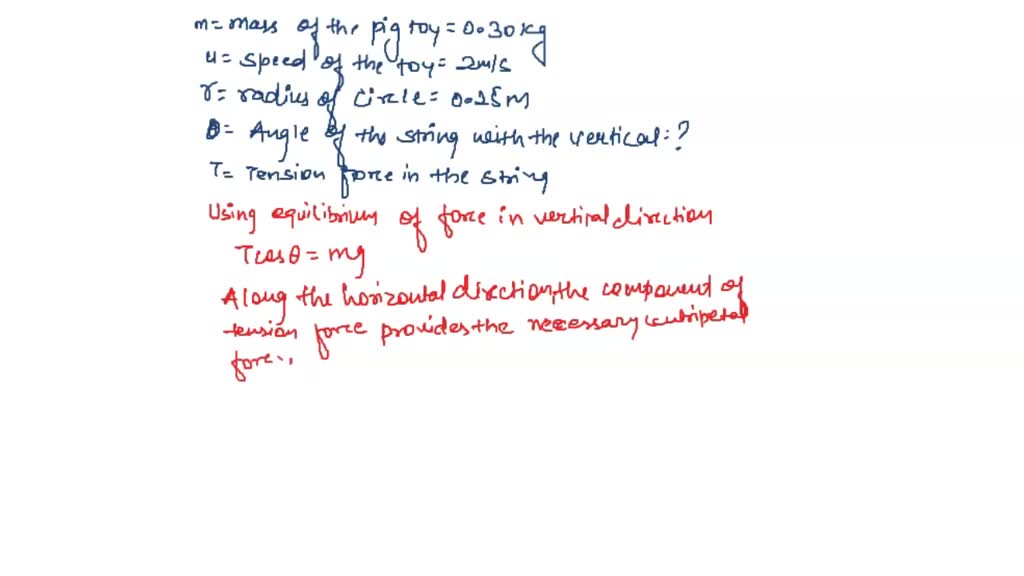 m= mass of the pig toy = 0.30 kg
u= speed of the toy= 2m/s
r= radius of circle= 0.25m
θ= Angle of the string with the vertical= ?
T= Tension force in the string
Using equilibrium of force in vertical direction
Tcosθ = mg
Along the horizontal direction, the component of
tension force provides the necessary centripetal
force.,